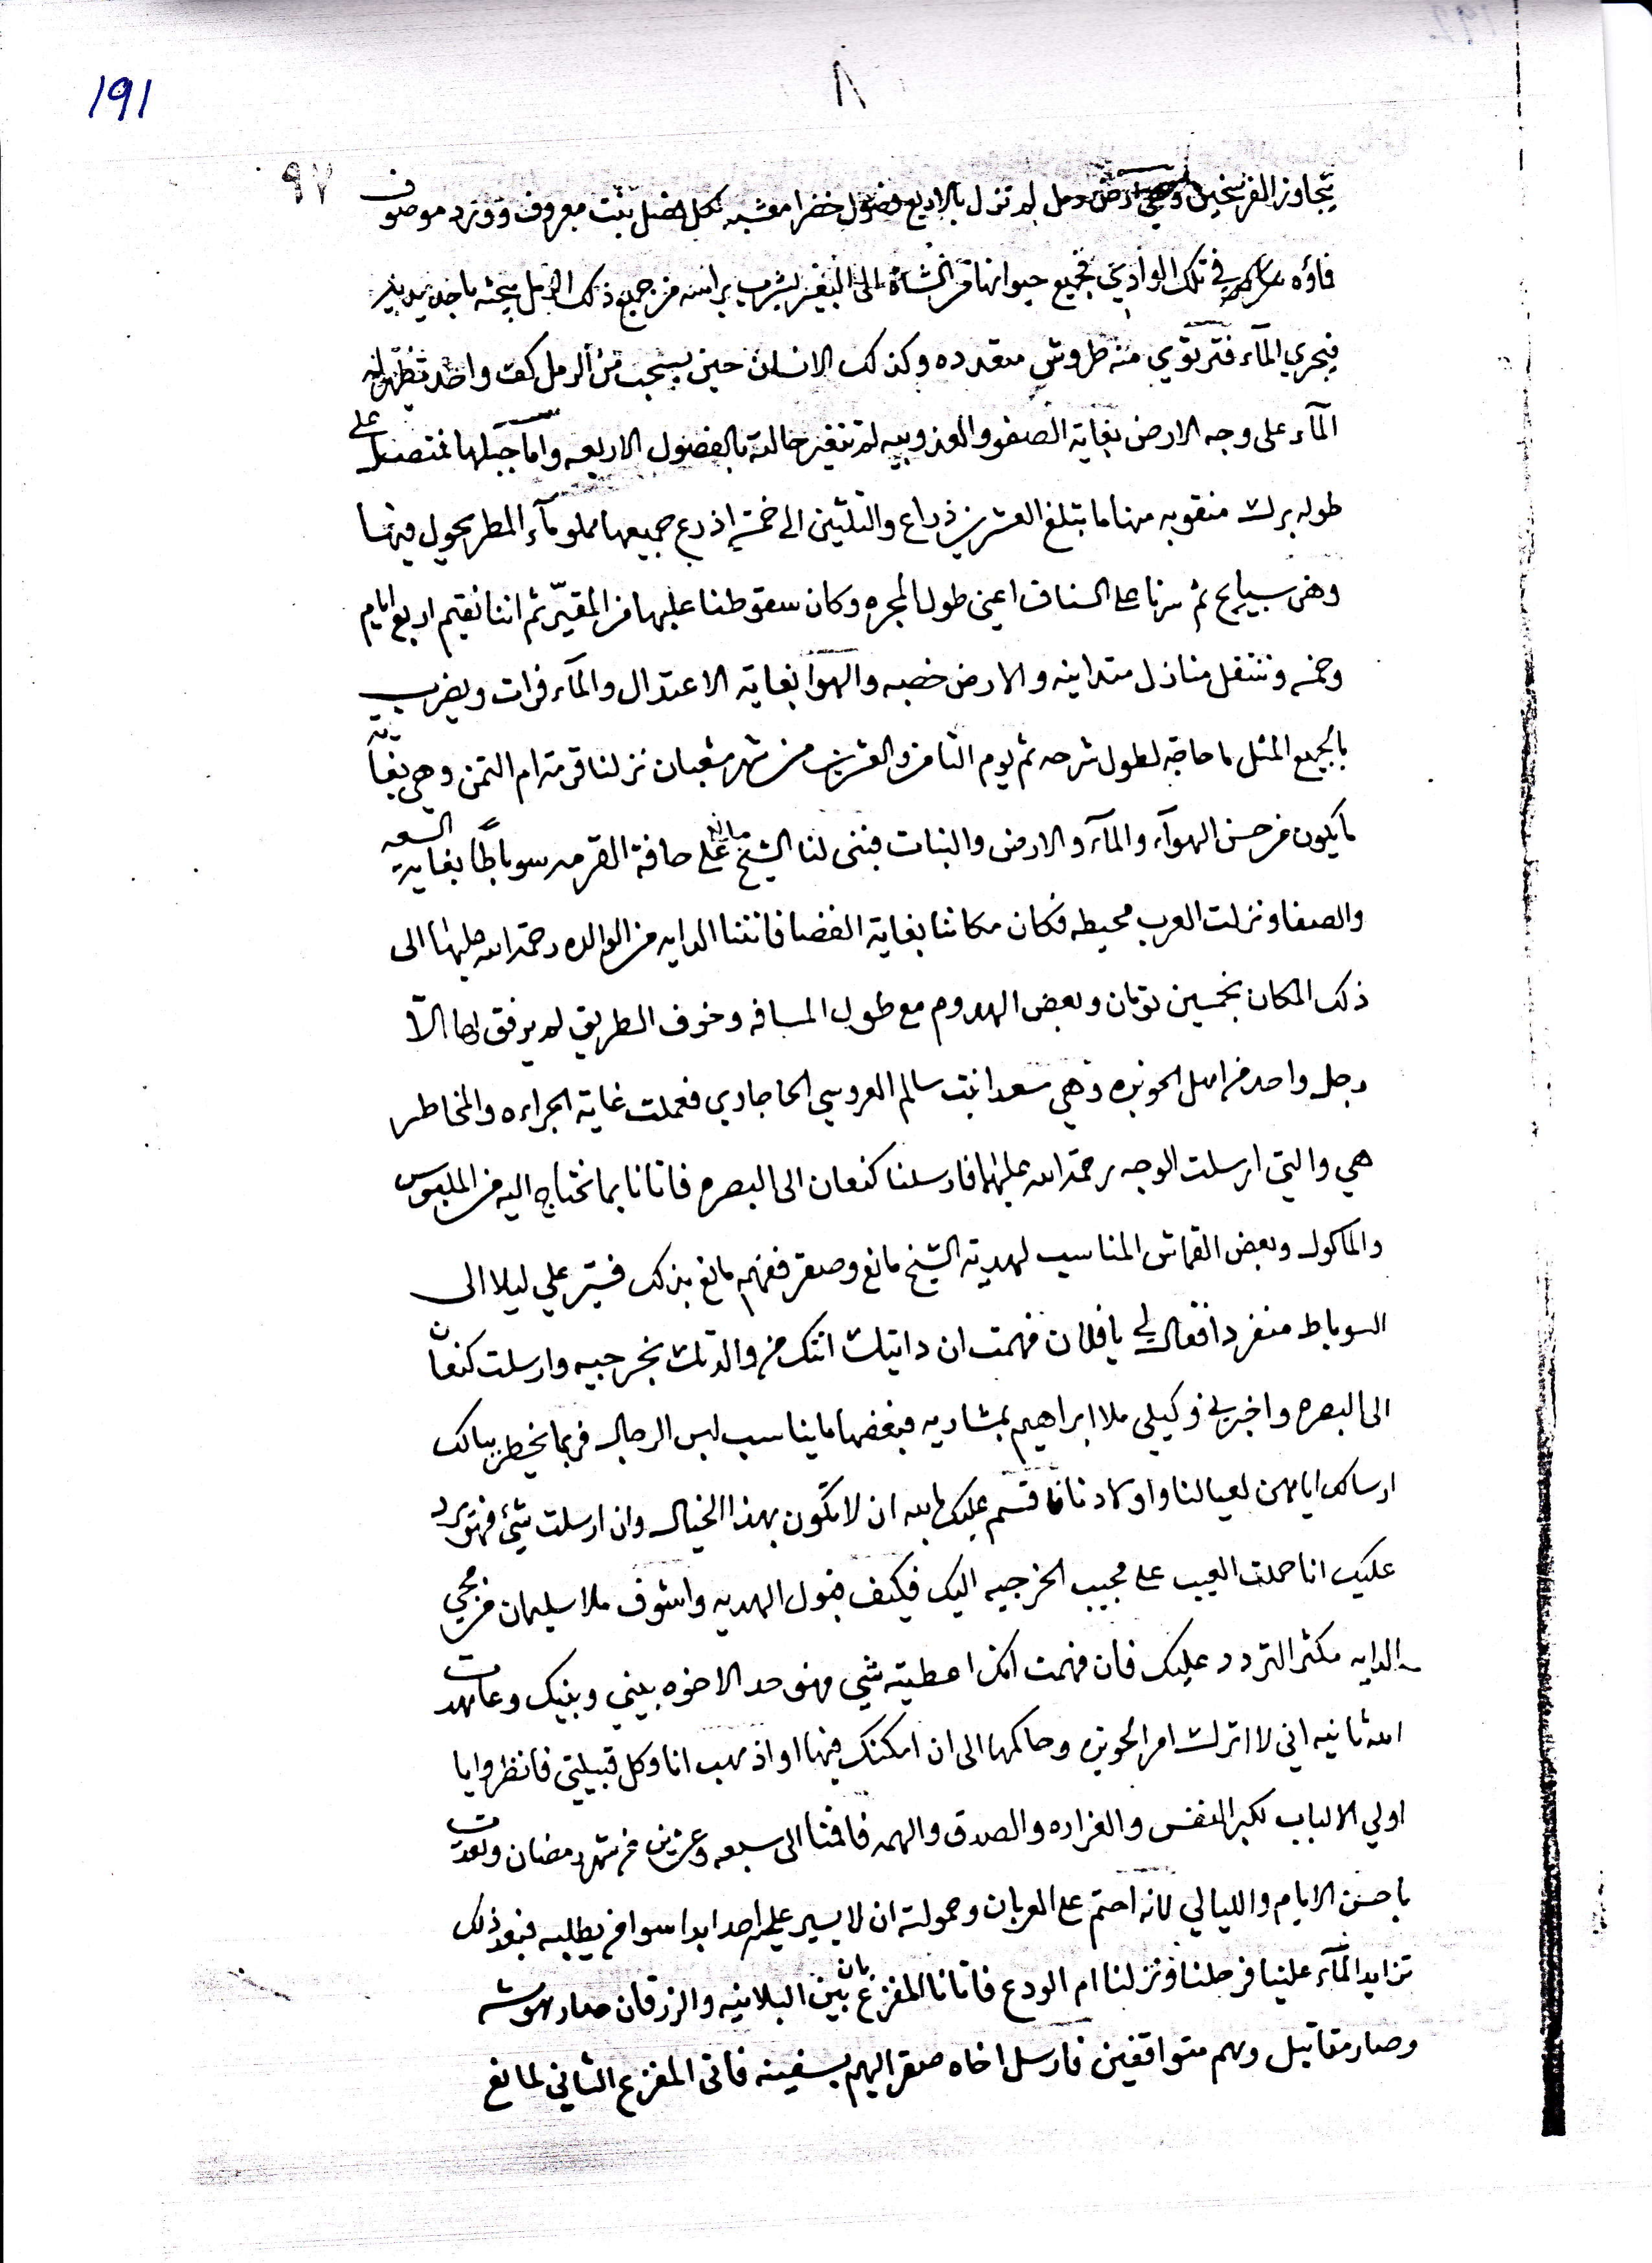 191
٨
٩٧
يتجاوز الفرسخين وهي ارض رمل لم تزل بالاربع فصول خضرا معشبه لكل فصل بنت معروف وورد موصوف
فاؤه في تلك الوادي فجميع حيوانها من الشاة الى البقر لشرب براسه من جميع ذلك الرمل يبحثه باحد يديه
فيجري المآء فترتوي منه طروش متعدده وكذلك الانسان حين يسحب من الرمل كف واحد تظهر له
المآء على وجه الارض بغاية الصفو والعذوبيه لم تتغير حالته بالفصول الاربعه واما جبلها فمتصل على
طوله برك منقوبه منها ما يبلغ العشرين ذراع والثلثين الى خمسة اذرع جميعها مملو مآء المطر يحول فيها
وهي سيايح ثم سرنا على السناف اعني طول المجره وكان سقوطنا عليها من المقيّر ثم اننا نقيم اربع ايام
وخمسه وننتقل منازل متدانيه والارض خصبه والهوا بغاية الاعتدال والمآء فرات ويضرب
بالجميع المثل ما حاجه لطول شرحه ثم يوم الثامن والعشرين من شهر شعبان نزلنا قرمة ام التمن وهي بغاية
ما يكون من حسن الهوآء والمآء والارض والنبات فبنى لنا الشيخ مانع على حافة القرمه سوباطًا بغاية السعه
والصفا ونزلت العرب محيطه فكان مكاننا بغاية الفضا فاتتنا الدايه من الوالده رحمة الله عليها الى
ذلك المكان بخمسين تومان وبعض الهدوم مع طول المسافه وخوف الطريق لم يرفق لها الاّ
رجل واحد من اهل الحويزه وهي سعدا بنت سالم العروسي الحاجاري فعملت غاية الجراءه والمخاطر
هي والتي ارسلت الوجه رحمة الله عليهما فارسلنا كنعان الى البصره فاتانا بما نحتاج اليه من الملبوس
والماكول وبعض القماش المناسب لهدية الشيخ مانع وصقر ففهم مانع بذلك فسيّر علي ليلا الى
السوباط منفردا فقال لي يا فلان فهمت ان دايتك اتتك من والدتك بخرجيه وارسلت كنعان
الى البصره واخبرني وكيلي ملا ابراهيم بمشاريه فبعضها ما يناسب لبس الرجال فربما يخطر ببالك
ارسالك اياهن لعيالنا واولادنا فاقسم عليك بالله ان لا تكون بهذا الخيال وان ارسلت شيئ فهو يرد
عليك انا حملت العيب على مجيب الخرجيه اليك فكيف قبول الهديه واشوف ملا سليمان من مجي
الدايه مكثر التردد عليك فان فهمت انك اعطيته شي فهو حد الاخوه بيني وبينك وعاهدت
الله ثانيه اني لا اترك امر الحويزه وحاكمها الى ان امكنك فيها او اذهب انا وكل قبيلتي فانظروا يا
اولي الالباب لكبر النفس والغزاره والصدق والهمه فاقمنا الى سبعه وعشرين من شهر رمضان وتعدت
باحسن الايام والليالي لانه احتم على العربان وحمولته ان لا يسير علي احد ابدا سوا من يطلبه فبعد ذلك
تزايد المآء علينا فرحلنا ونزلنا ام الودع فاتانا المفزع بان بين البلانيه والزرقان صار هوشه
وصار مقاتيل وهم متواقفين فارسل اخاه صقر اليهم بسفينه فاتى المفزع الثاني لمانع